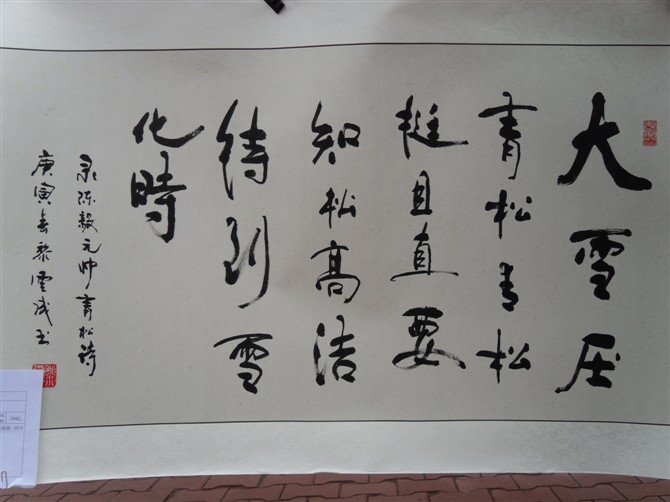 大雪压
青松青松
挺且直要
知松高洁
待到雪
化時
录陈毅元帅青松诗
庚寅春黎雲成书